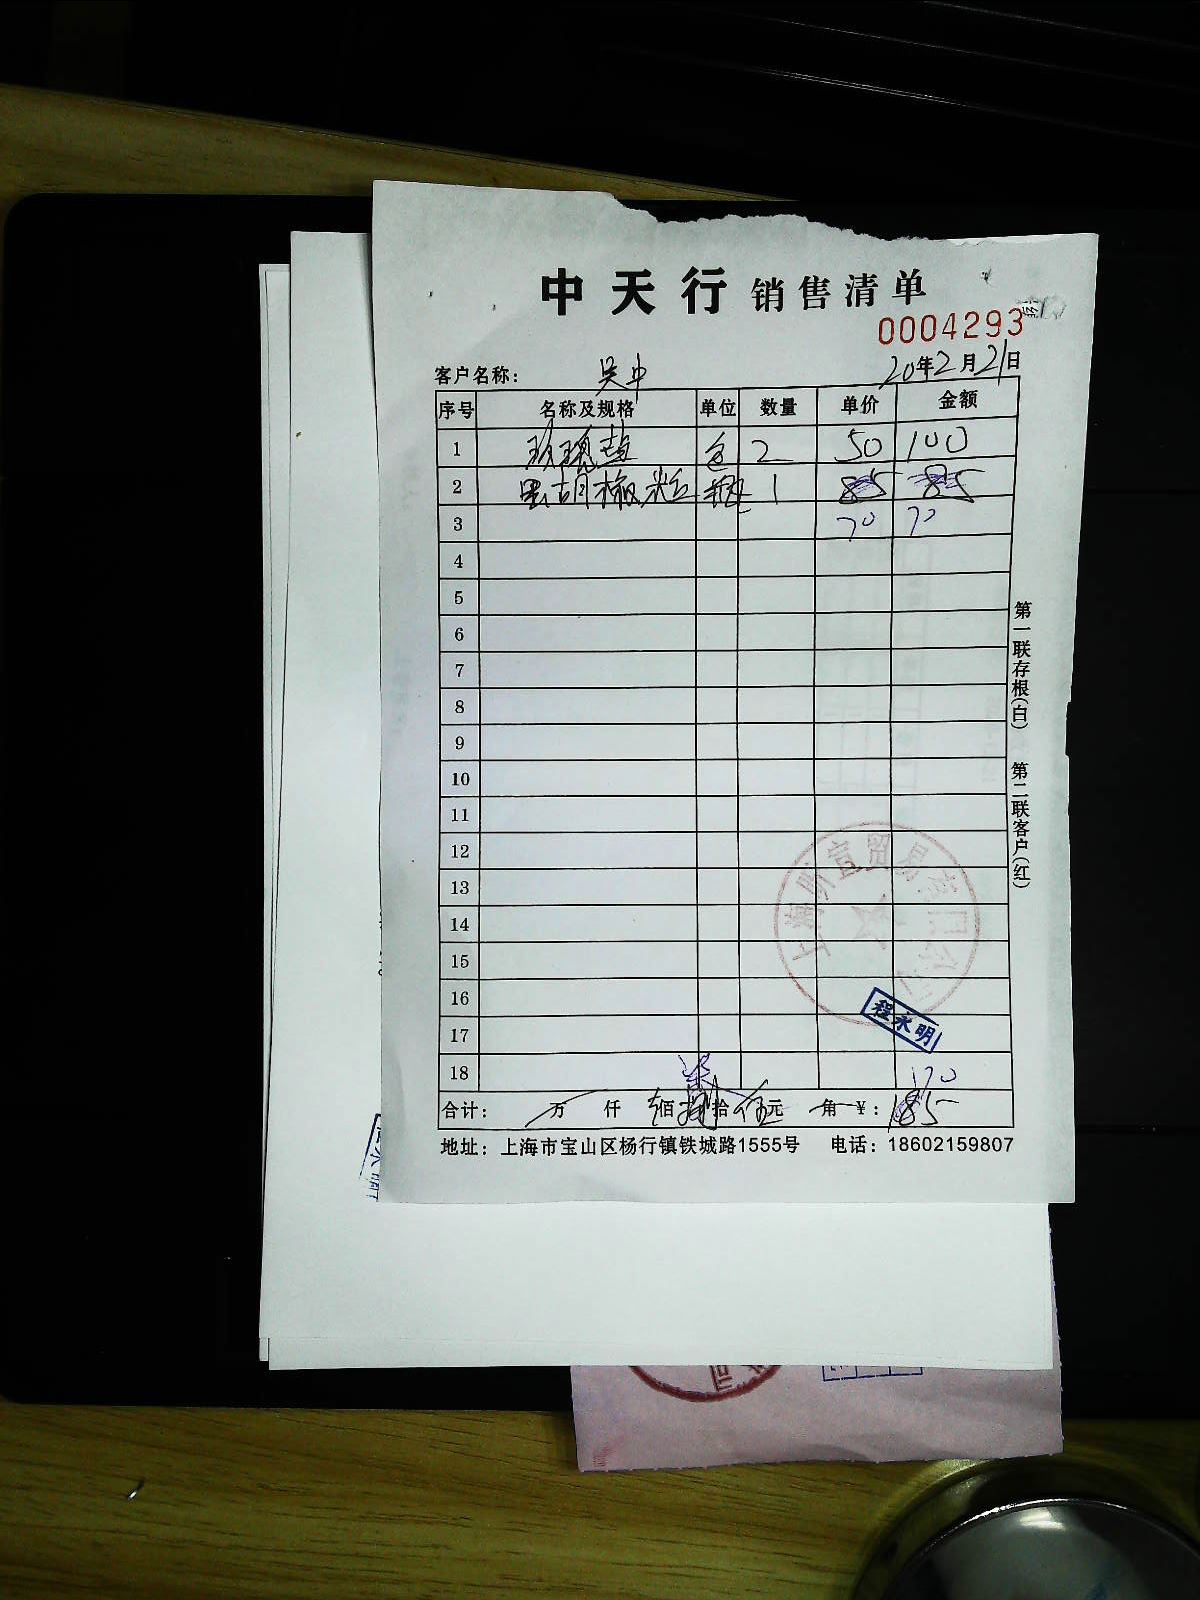 中天行 销售清单
0004293
客户名称： 吴中 20年2月21日
序号 名称及规格 单位 数量 单价 金额
1 玫瑰盐 包 2 50 100
2 黑胡椒粒 瓶 1 85 85
3 70 70
4
5
6
7
8
9
10
11
12
13
14
15
16
17
18 170
合计： 万 仟 佰 捌拾伍元 角 ¥：185
地址：上海市宝山区杨行镇铁城路1555号 电话：18602159807
第一联存根(白) 第二联客户(红)
程永明